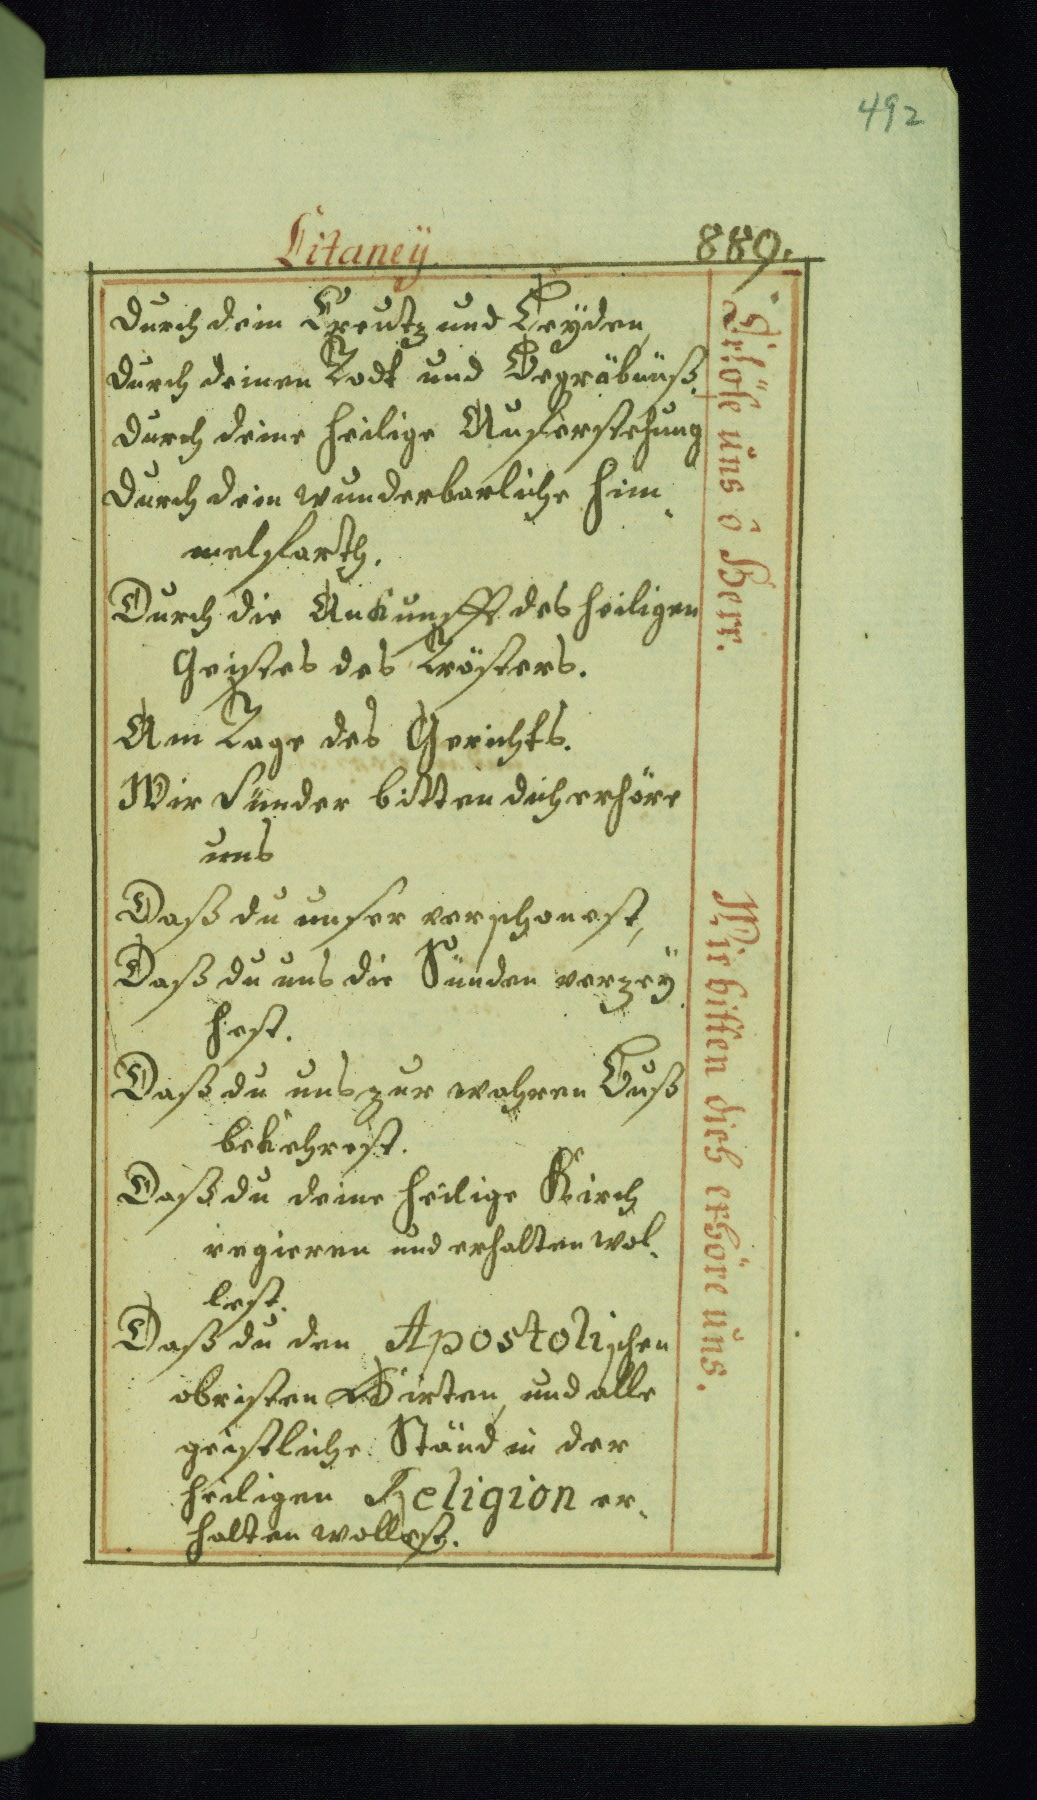 492
Litaney 889.
durch dein Creutz und Leyden,
durch deinen Todt und Begräbnuß.
durch deine heilige Auferstehung
durch dein wunderbarliche Him-
melfarth.
Durch die Ankunfft des heiligen
Geistes des Trösters.
Am Tage des Gerichts.
Wir Sünder bitten dich erhöre
uns
Daß du unser verschonest,
Daß du uns die Sünden verzey
hest.
Daß du uns zur wahren Buß
bekehrest.
Daß du deine heilige Kirch
regieren und erhalten wol-
lest.
Daß du den Apostolischen
obristen Hirten, und alle
geistliche Ständ in der
heiligen Religion er-
halten wollest.
Erlöse uns ô Herr.
Wir bitten dich erhöre uns.